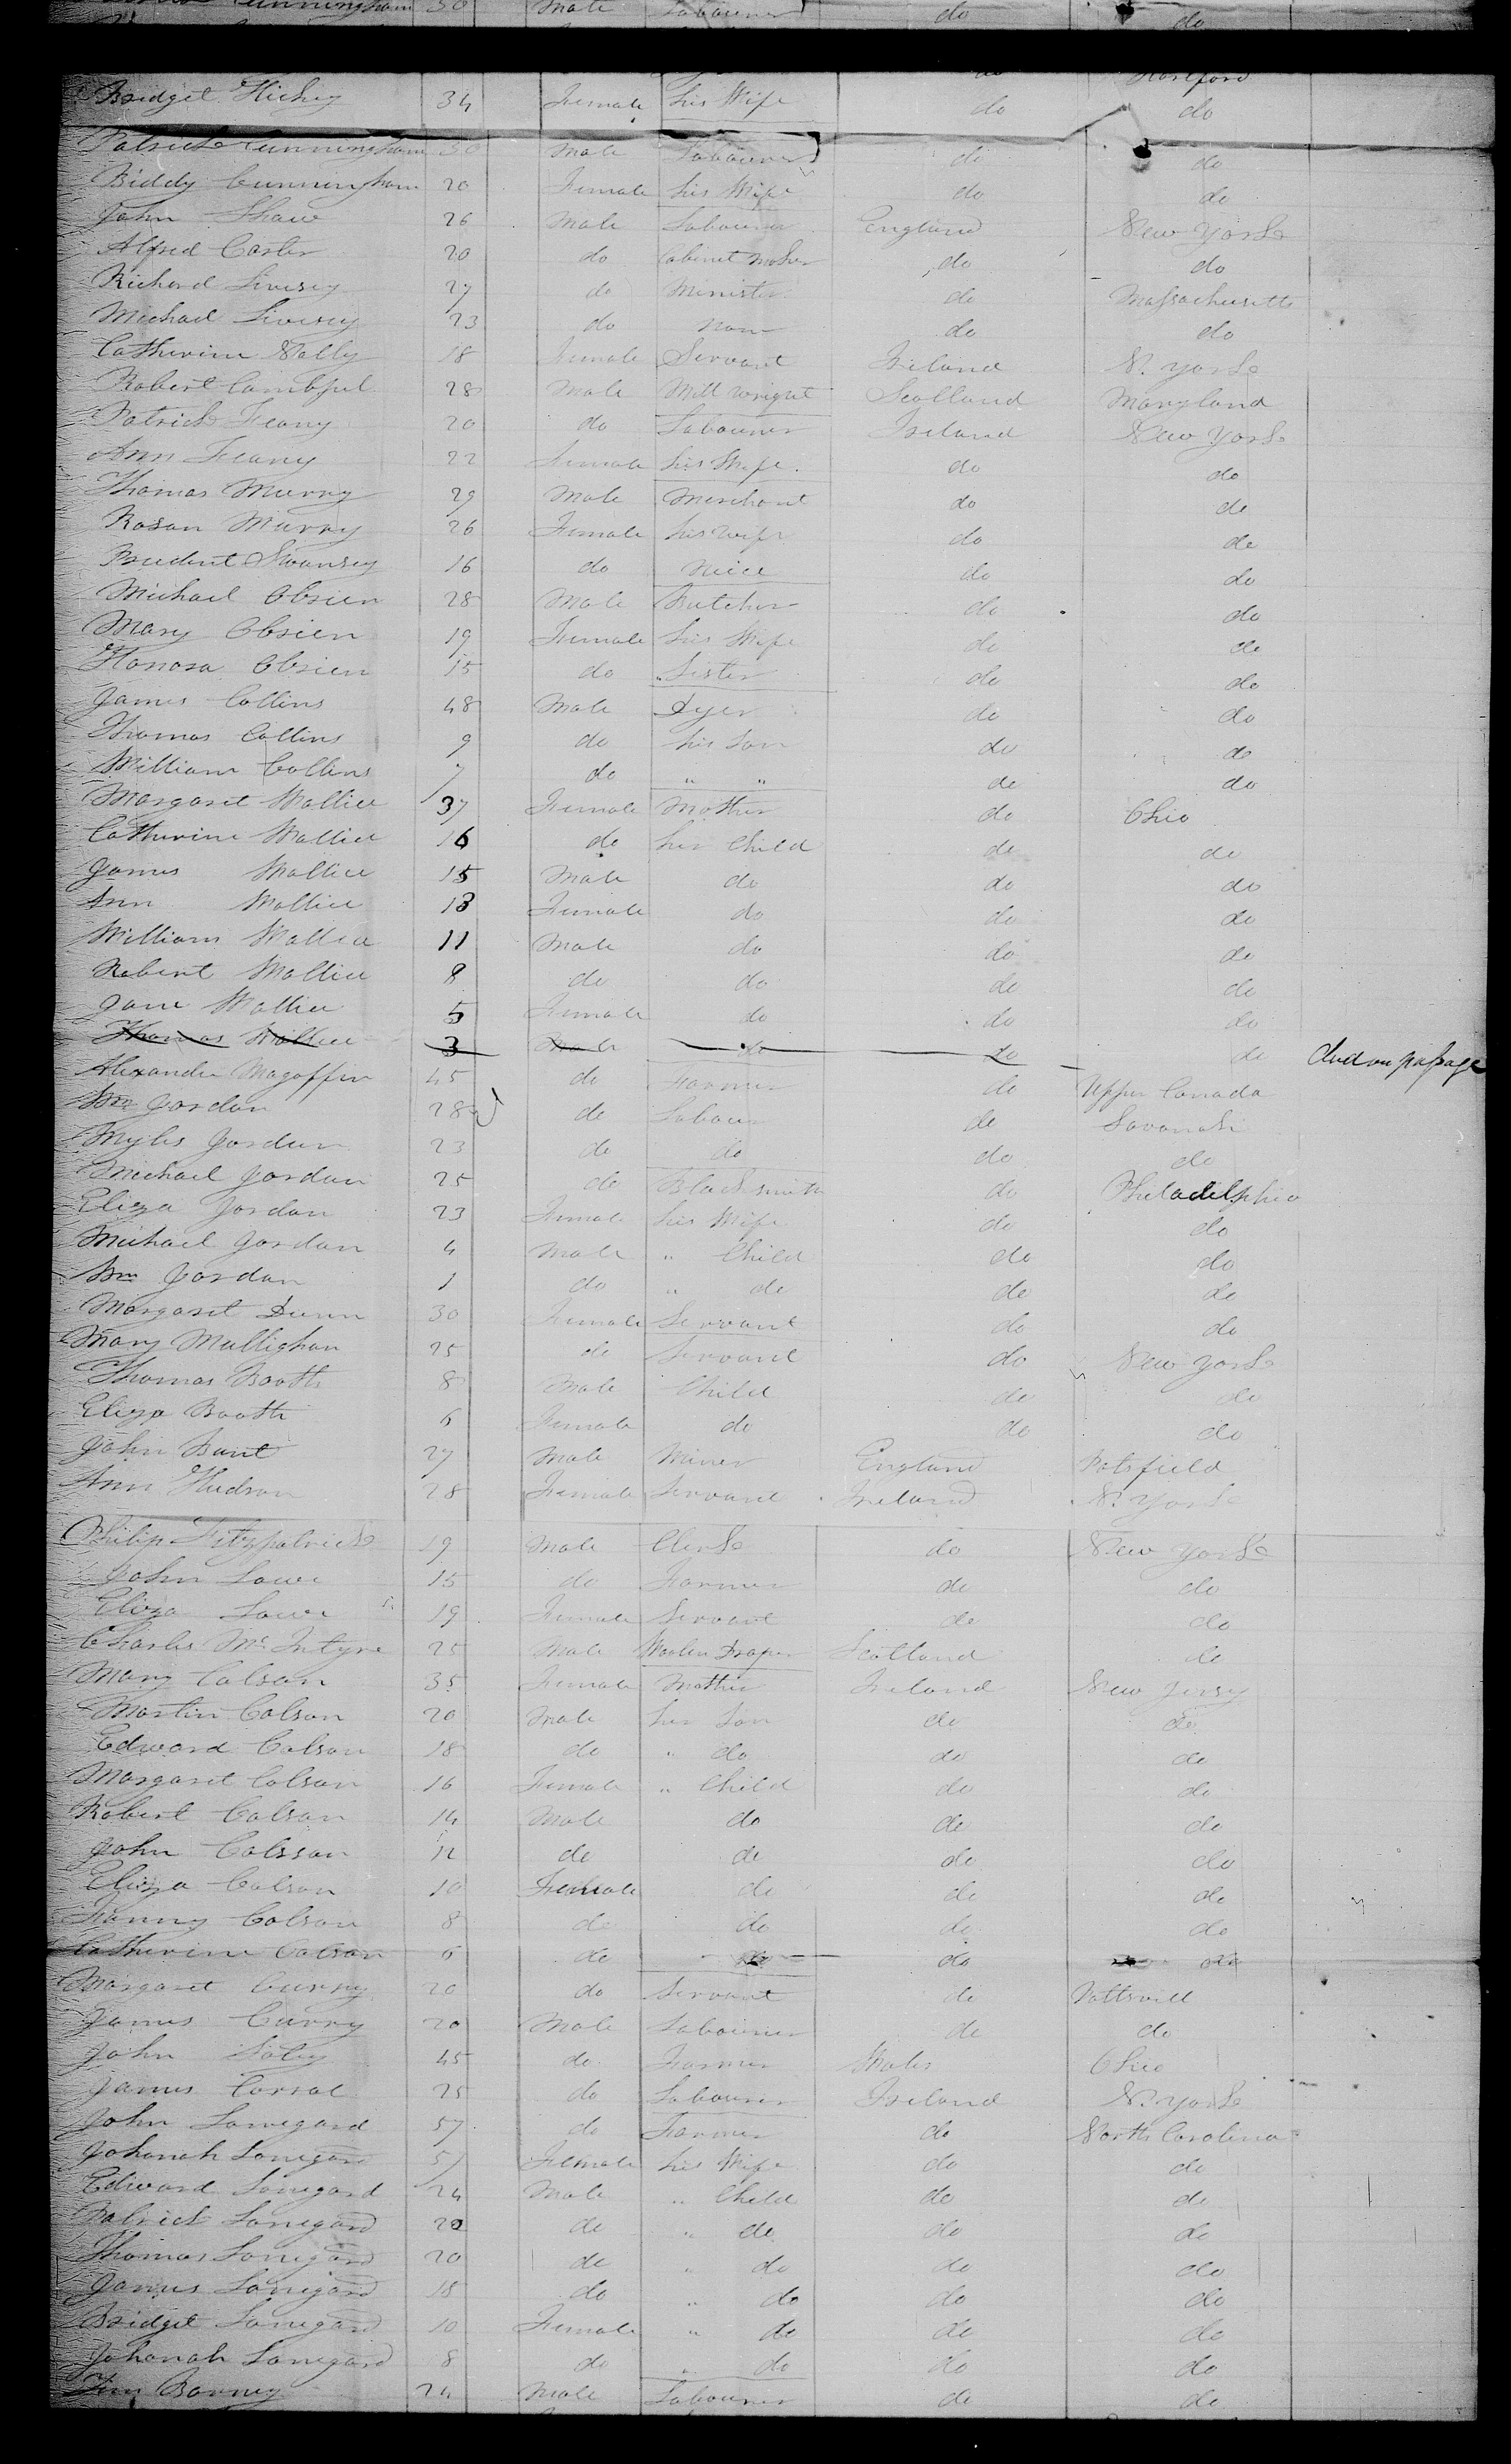 Cunningham 30 Male Labourer do do
Hartford
Bridget Hickey 34 Female his Wife do do
Patrick Cunningham 30 Male Labourer do do
Biddy Cunningham 20 Female his Wife do do
John Shaw 26 Male Labourer England New York
Alfred Carter 20 do Cabinet Maker do do
Richard Livesey 27 do Minister do Massachusetts
Michael Livesey 23 do None do do
Catherine Nally 18 Female Servant Ireland N. York
Robert 28 Male Mill Wright Scotland Maryland
Patrick Feany 20 do Labourer Ireland New York
Ann Feany 22 Female his Wife do do
Thomas Murry 29 Male Merchant do do
Rosan Murry 26 Female his Wife do do
Prudent Swansey 16 do Neice do do
Michael Obrien 28 Male Butcher do do
Mary Obrien 19 Female his Wife do do
Honora Obrien 15 do " Sister do do
James Collins 48 Male Dyer do do
Thomas Collins 9 do his Son do do
William Collins 7 do " " do do
Margaret Wallice 37 Female Mother do Ohio
Catherine Wallice 16 do her Child do do
James Wallice 15 Male do do do
Ann Wallice 13 Female do do do
William Wallice 11 Male do do do
Robert Wallice 8 do do do do
Jane Wallice 5 Female do do do
Thomas Wallice 3 Male do do do died on passage
Alexander Magaffin 45 do Farmer do Upper Canada
Wm Jordan 28 do Labour do Savanah
Myles Jordan 23 do do do do
Michael Jordan 25 do Blacksmith do Philadelphia
Eliza Jordan 23 Female his Wife do do
Michael Jordan 4 Male " Child do do
Wm Jordan 1 do " do do do
Margaret Dunn 30 Female Servant do do
Mary Mullighan 25 do Servant do New York
Thomas Booth 8 Male Child do do
Eliza Booth 6 Female do do do
John Bunt 27 Male Miner England Potsfield
Ann Hudson 28 Female Servant Ireland N. York
Philip Fitzpatrick 19 Male Clerk do New York
John Lowe 15 do Farmer do do
Eliza Lowe 19 Female Servant do do
Charles McIntyre 25 Male Woolen Draper Scotland do
Mary Colson 35 Female Mother Ireland New Jersy
Martin Colson 20 Male her Son do do
Edward Colson 18 do " do do do
Margaret Colson 16 Female " Child do do
Robert Colson 14 Male do do do
John Colsson 12 do do do do
Eliza Colson 10 Female do do do
Fanny Colson 8 do do do do
Catherine Colson 6 do do do do
Margaret Curry 20 do Servant do Pottsvill
James Curry 20 Male Labourer do do
John 45 do Farmer Wales Ohio
James 25 do Labourer Ireland N. York
John Lonegard 57 do Farmer do North Carolina
Johanah Lonegard 57 Female his Wife do do
Edward Lonegard 24 Male " Child do do
Patrick Lonegard 22 do " do do do
Thomas Lonegard 20 do " do do do
James Lonegard 18 do " do do do
Bridget Lonegard 10 Female " do do do
Johanah Lonegard 8 do " do do do
Tim Barney 24 Male Labourer do do